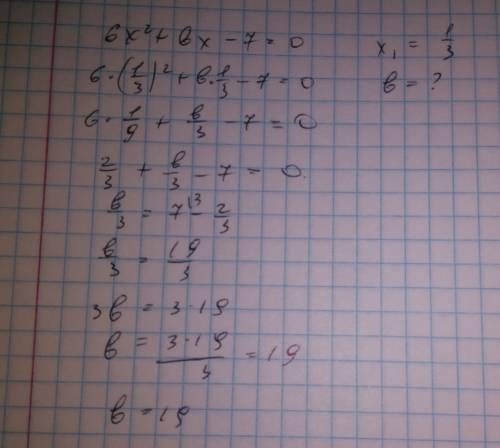 6x² + bx - 7 = 0    x₁ = 1/3
6·(1/3)² + b·1/3 - 7 = 0    b = ?
6·1/9 + b/3 - 7 = 0
2/3 + b/3 - 7 = 0.
b/3 = 7\3 - 2/3
b/3 = 19/3
3b = 3·19
b = 3·19/3 = 19
b = 19